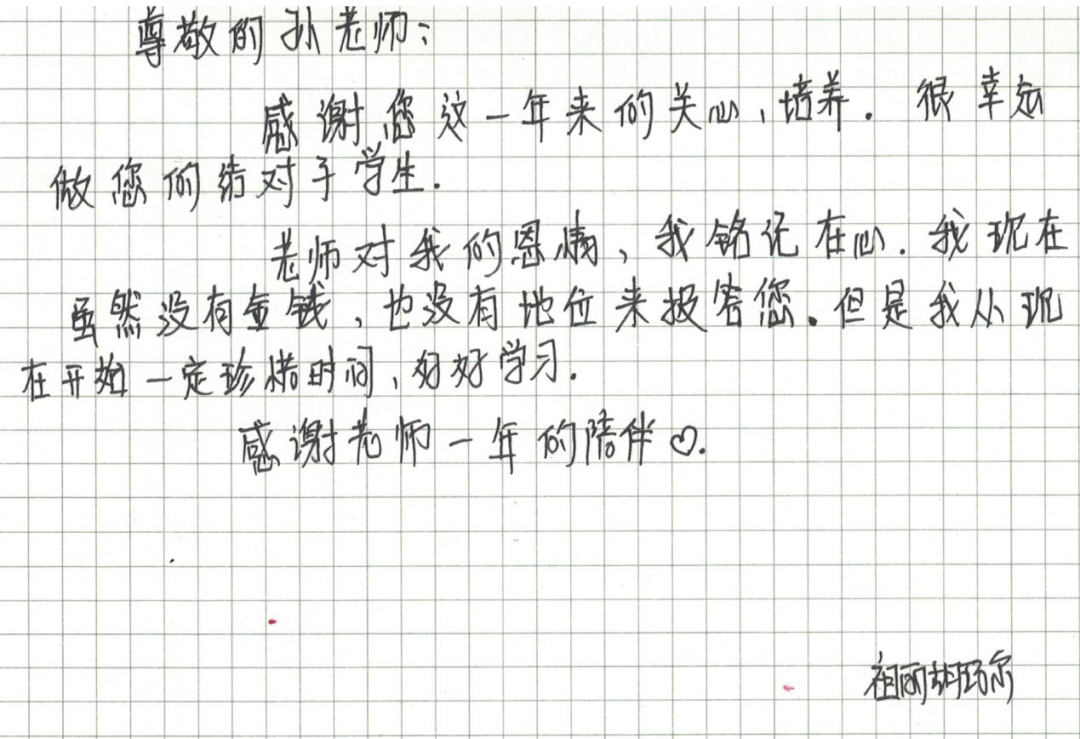 尊敬的孙老师:
感谢您这一年来的关心,培养. 很幸运
做您的结对子学生.
老师对我的恩情,我铭记在心. 我现在
虽然没有金钱,也没有地位来报答您.但是我从现
在开始一定珍惜时间,好好学习.
感谢老师一年的陪伴♡.
祖丽胡玛尔